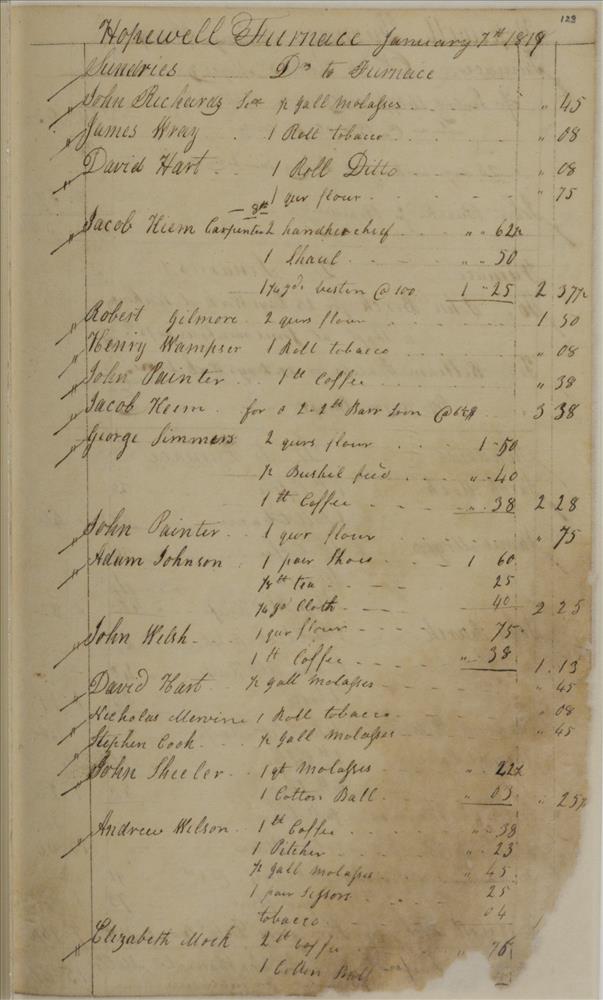 123
Hopewell Furnace January 7th 1819
Sundries Drs to Furnace
John Richards ½ gall molasses " 45
James Wray 1 Roll tobacco " 08
David Hart 1 Roll Ditto " 08
1 qur flour " 75
8th
Jacob Hiem Carpenter 2 handkerchief " 62½
1 Shaul " 50
1¼ yds vestin @ 100 1 25 2 37½
Robert Gilmore 2 qurs flour 1 50
Henry Wampser 1 Roll tobacco " 08
John Painter 1 lb Coffee " 38
Jacob Heem for Barr Iron 3 38
George Simmers 2 qurs flour 1 50
½ Bushel feed " 40
1 lb Coffee " 38 2 28
John Painter 1 qur flour " 75
Adam Johnson 1 pair Shoes 1 60
¼ lb tea 25
¼ yd Cloth 40 2 25
John Welsh 1 qur flour 75
1 lb Coffee " 38 1 13
David Hart ½ gall molasses " 45
Nicholas Mervine 1 Roll tobacco " 08
Stephen Cook ½ gall molasses " 45
John Sheeler 1 qt Molasses " 22½
1 Cotton Ball " 03 " 25½
Andrew Wilson 1 lb Coffee " 38
1 Pitcher " 23
½ gall molasses " 45
1 pair Sissors 25
tobacco 04
Elizabeth Mock 2 lb Coffe " 76
1 Cotton Ball